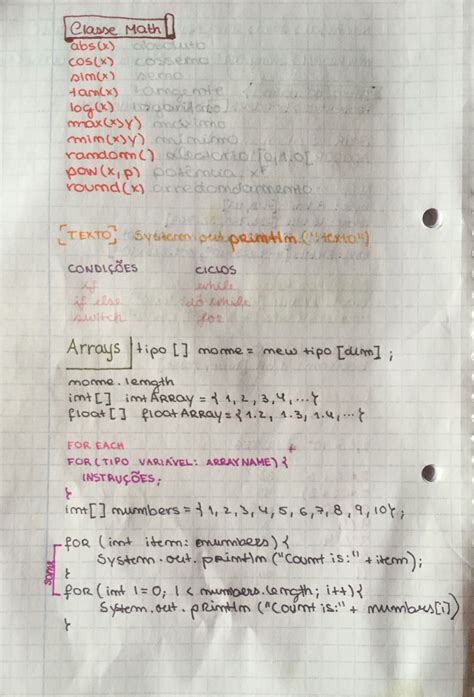 Classe Math
abs(x) absoluto
cos(x) cosseno
sin(x) seno
tan(x) tangente
log(x) logaritmo
max(x,y) máximo
min(x,y) mínimo
random() aleatório [0,1.0[
pow(x,p) potência xᵖ
round(x) arredondamento
[TEXTO] System.out.println.("texto")
CONDIÇÕES CICLOS
if while
if else do while
switch for
Arrays tipo [] nome = new tipo [dim] ;
nome.length
int[] intARRAY = {1, 2, 3, 4, ...}
float[] floatARRAY = {1.2, 1.3, 1.4, ...}
FOR EACH
FOR (TIPO VARIÁVEL: ARRAYNAME) {
INSTRUÇÕES;
}
int[] numbers = {1, 2, 3, 4, 5, 6, 7, 8, 9, 10};
for (int item: numbers) {
System.out.println ("Count is:" + item);
}
same
for (int I=0; I < numbers.length; i++){
System.out.println ("Count is:" + numbers[i])
}